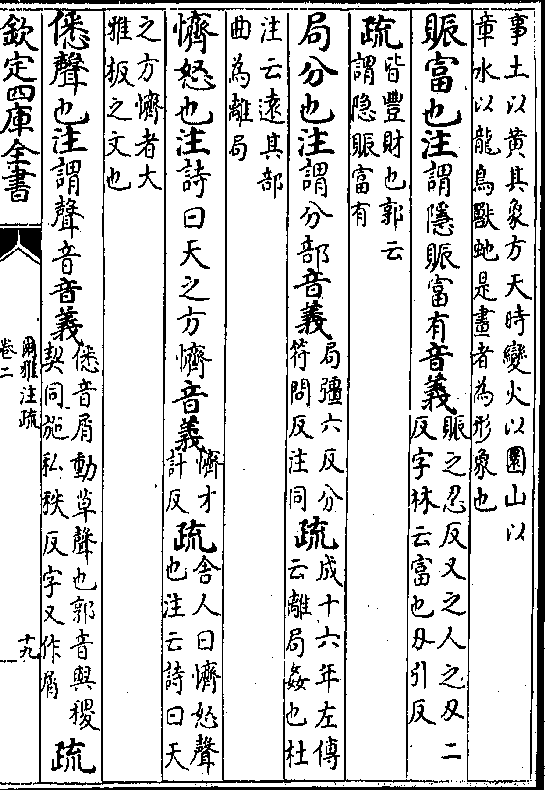 事土以黄其象方天時變火以圜山以
章水以龍鳥獸虵是畫者為形象也
賑富也注謂隱賑富有音義賑之忍反又之人之刃二
反字林云富也刃引反
疏皆豐財也郭云
謂隐賑富有
局分也注謂分部音義局彊六反分
符問反注同疏成十六年左傳
云離局姦也杜
注云遠其部
曲為離局
懠怒也注詩曰天之方懠音義懠才
計反疏舍人曰懠怒聲
也注云詩曰天
之方懠者大
雅板之文也
僁聲也注謂聲音音義僁音屑動草聲也郭音與稷
契同施私秩反字又作屑疏
欽定四庫全書
爾雅注疏
卷二
十九